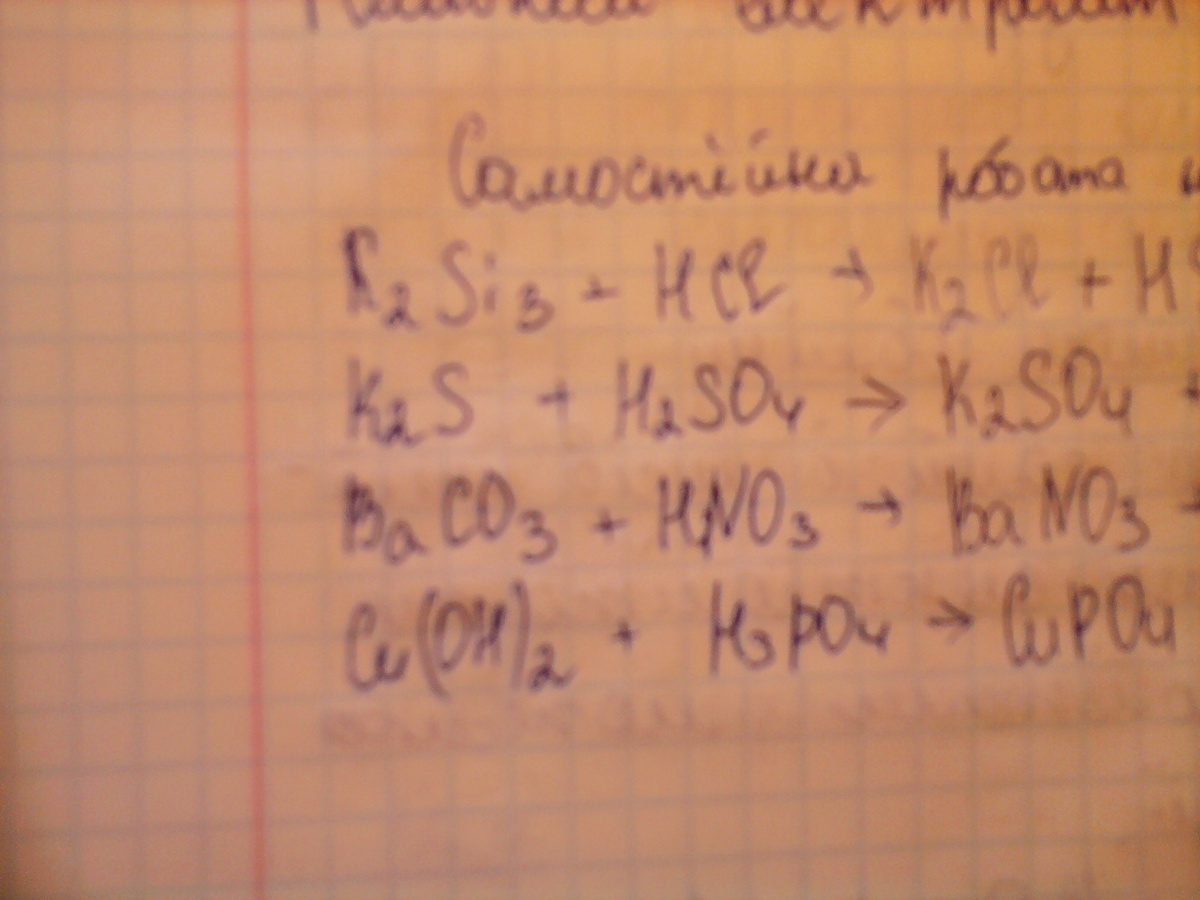 Самостійна робота
K2Si3 + HCl → K2Cl + H
K2S + H2SO4 → K2SO4 +
BaCO3 + HNO3 → BaNO3 +
Cu(OH)2 + H3PO4 → CuPO4